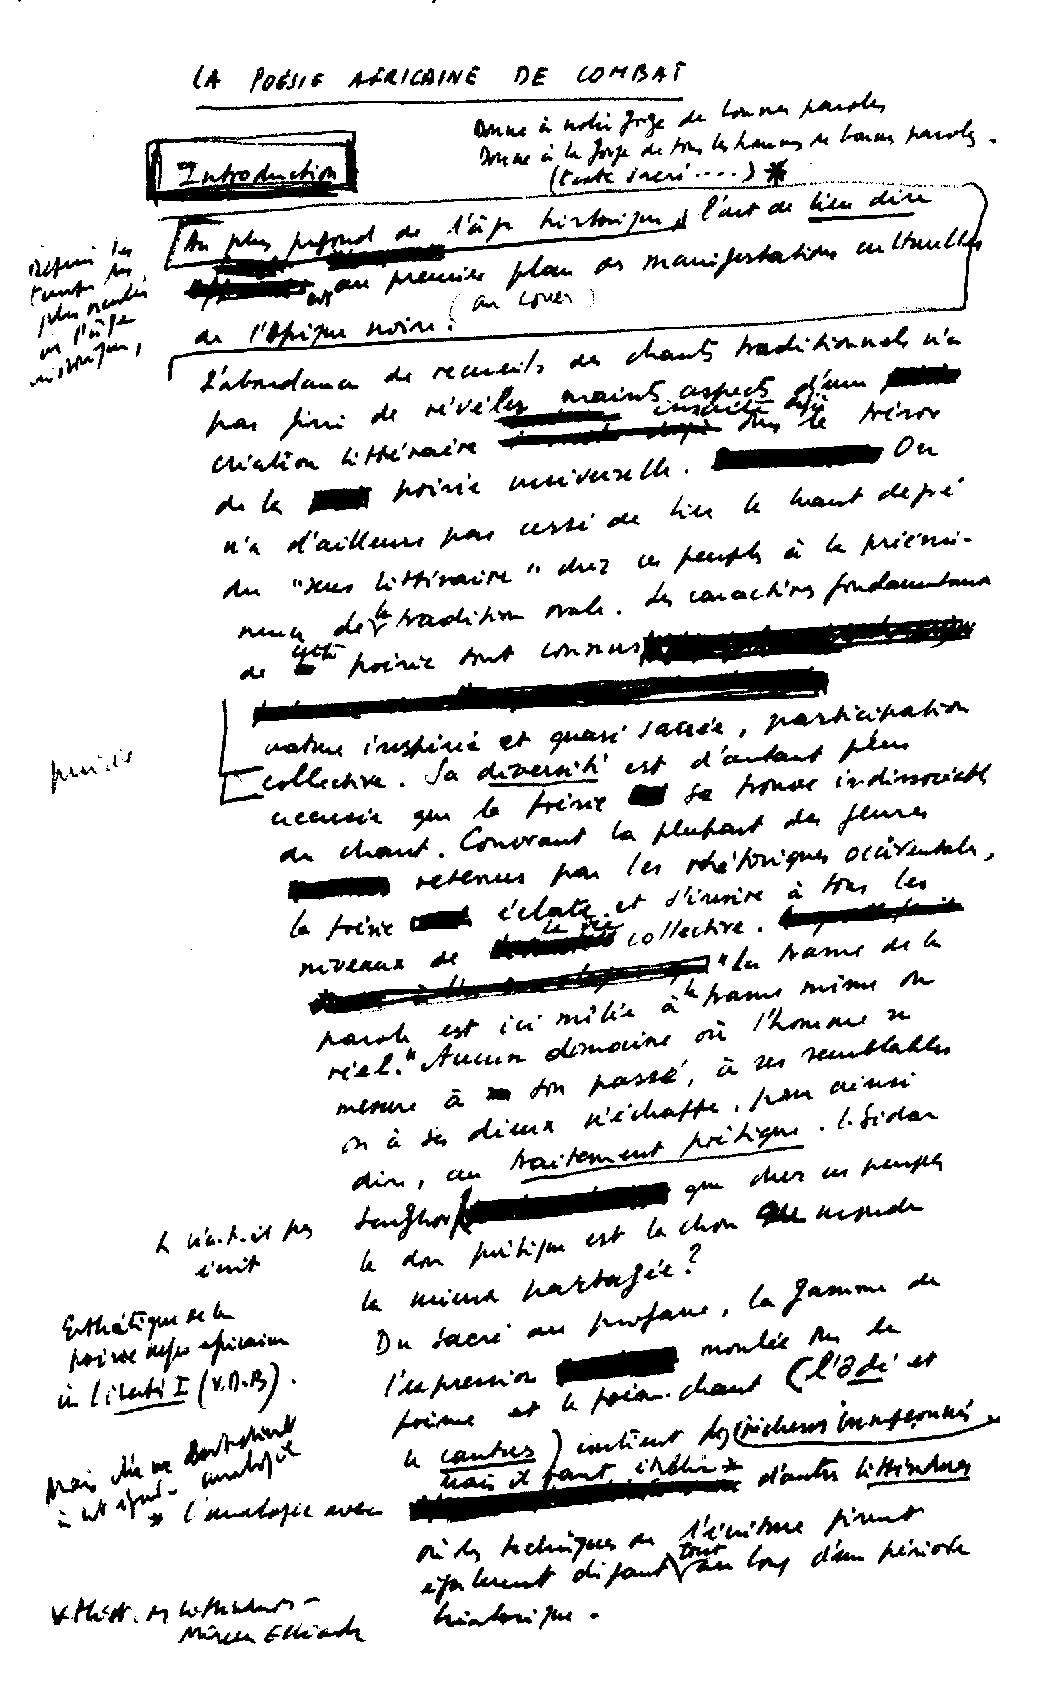 LA POÉSIE AFRICAINE DE COMBAT
Donne à notre forge de bonnes paroles
Donne à la forge de tous les hommes de bonnes paroles.
(texte sacré ....) *
Introduction
Au plus profond de l'âge historique, l'art de bien dire
au premier plan des manifestations culturelles
de l'Afrique noire.
L'abondance de recueils de chants traditionnels n'a
pas fini de révéler maints aspects d'une
création littéraire inscrite déjà dans le trésor
de la poésie universelle. On
n'a d'ailleurs pas cessé de lier le haut degré
du "sens littéraire" chez ces peuples à la préémi-
nence de la tradition orale. Les caractères fondamentaux
de cette poésie sont connus
nature inspirée et quasi sacrée, participation
collective. Sa diversité est d'autant plus
accusée que la poésie se trouve indissociable
du chant. Couvrant la plupart des genres
retenus par les rhétoriques occidentales,
la poésie éclate et s'insère à tous les
niveaux de la vie collective.
"La trame de la
parole est ici mêlée à la trame même du
réel." Aucun domaine où l'homme se
mesure à son passé, à ses semblables
ou à ses dieux n'échappe, pour ainsi
dire, au traitement poétique. L. Sédar
Senghor que chez ces peuples
le don poétique est la chose du monde
la mieux partagée?
n'a-t-il pas
écrit
Du sacré au profane, la gamme de
l'expression moulée dans le
poème et le poème-chant (l'Odé et
le cantres) contient des richesses insoupçonnées
mais il faut établir
l'analogie avec d'autres littératures
où les techniques de l'écriture firent
également défaut tout au long d'une période
historique.
Esthétique de la
poésie négro africaine
in Liberté I
* Hist. des littératures -
Mircea Eliade